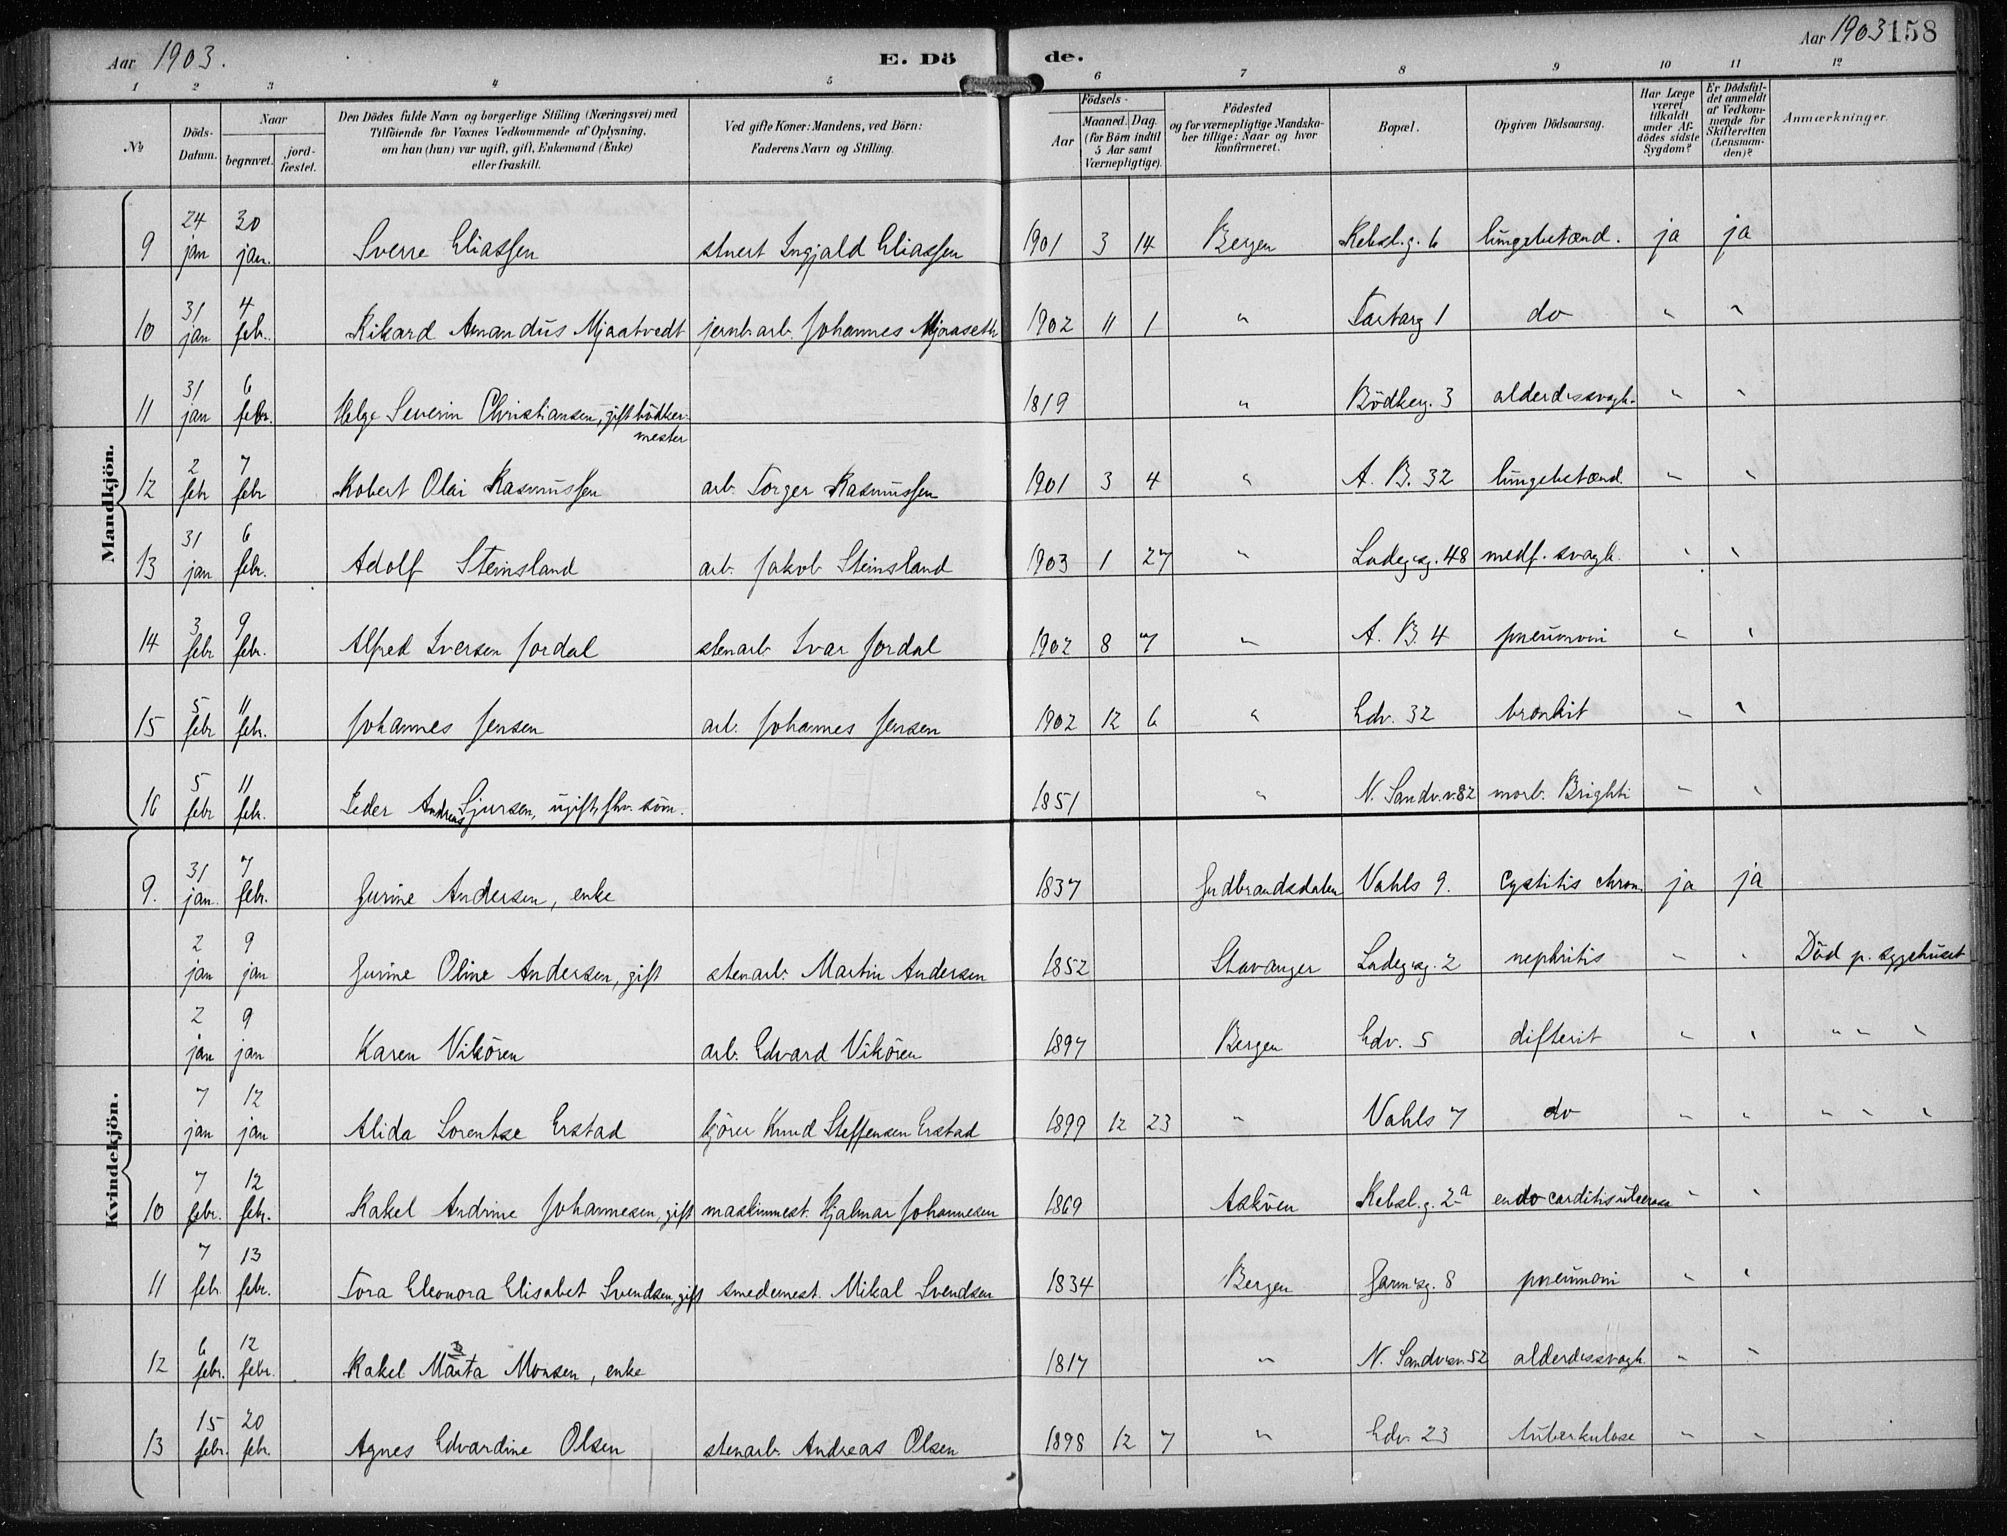 Aar 1903.
E. Dö
de.
Aar 1903 158
1 2 3 4 5 6 7 8 9 10 11 12
№
Döds-Datum.
Naar
begravet.
jord-fæstet.
Den Dödes fulde Navn og borgerlige Stilling (Næringsvei) med
Tilföiende for Voxnes Vedkommende af Oplysning,
om han (hun) var ugift, gift, Enkemand (Enke)
eller fraskilt.
Ved gifte Koner: Mandens, ved Börn:
Faderens Navn og Stilling.
Födsels-
Aar
Maaned. Dag.
(for Börn indtil
5 Aar samt
Værnepligtige).
Födested
og for værnepligtige Mandska-
ber tillige: Naar og hvor
konfirmeret.
Bopæl.
Opgiven Dödsaarsag.
Har Læge
været
tilkaldt
under Af-
dödes sidste
Sygdom?
Er Dödsfal-
det anmeldt
af Vedkom-
mende for
Skifteretten
(Lensman-
den)?
Anmærkninger.
Mandkjön.
9 24 jan 30 jan. Sverre Eliassen stuert Ingjald Eliassen 1901 3 14 Bergen Rebsl.g. 6 lungebetænd. ja ja
10 31 jan 4 febr. Rikard Amandus Mjaatvedt jernb.arb. Johannes 1902 11 1 " Tartarg 1 do " "
11 31 jan 6 febr. Helge Severin Christiansen, gift bödker-
mester 1819 " Bödkerg. 3 alderdssvagh. " "
12 2 febr 7 febr Robert Olai Rasmussen arb. Torger Rasmussen 1901 3 4 " A. B. 32 lungebetænd. " "
13 31 jan 6 febr. Adolf Steinsland arb. Jakob Steinsland 1903 1 27 " Ladegsg. 48 medf. svagh. " "
14 3 febr 9 febr. Alfred Iversen Jordal stenarb. Ivar Jordal 1902 8 7 " A. B. 4 pneumoni " "
15 5 febr 11 febr. Johannes Jensen arb. Johannes Jensen 1902 12 6 " Edv. 32 bronkit " "
16 5 febr 11 febr. Peder Andreas Sjursen, ugift, fhv. söm. 1851 " N. Sandv.v. 82 morb. Brighti " "
Kvindekjön.
9. 31 jan. 7 febr. Jurine Andersen, enke 1837 Gudbrandsdalen Vahls 9. Cystitis chron. ja ja
2 jan 9 jan Jurine Oline Andersen, gift stenarb. Martin Andersen 1852 Stavanger Ladegsg. 2 nephritis " " Död p. sygehuset
2 jan 9 jan Karen Vikören arb. Edvard Vikören 1897 Bergen Edv. 5 difterit " " " " "
7 jan 12 jan Alida Lorentse Erstad kjörer Knud Steffensen Erstad 1899 12 23 " Vahls 7 do " " " " "
10 7 febr. 12 febr. Rakel Andrine Johannesen, gift maskinmest. Hjalmar Johannesen 1869 Asköen Rebsl.g. 2a endocarditis ulcerosa " "
11 7 febr. 13 febr. Tora Eleonora Elisabet Svendsen, gift smedemest. Mikal Svendsen 1834 Bergen Garmsg. 8 pneumoni " "
12 6 febr. 12 febr. Rakel Marta Monsen, enke 1817 " N. Sandvsv. 52 alderdssvagh. " "
13 15 febr. 20 febr. Agnes Edvardine Olsen stenarb. Andreas Olsen 1898 12 7 " Edv. 23 tuberkulose " "